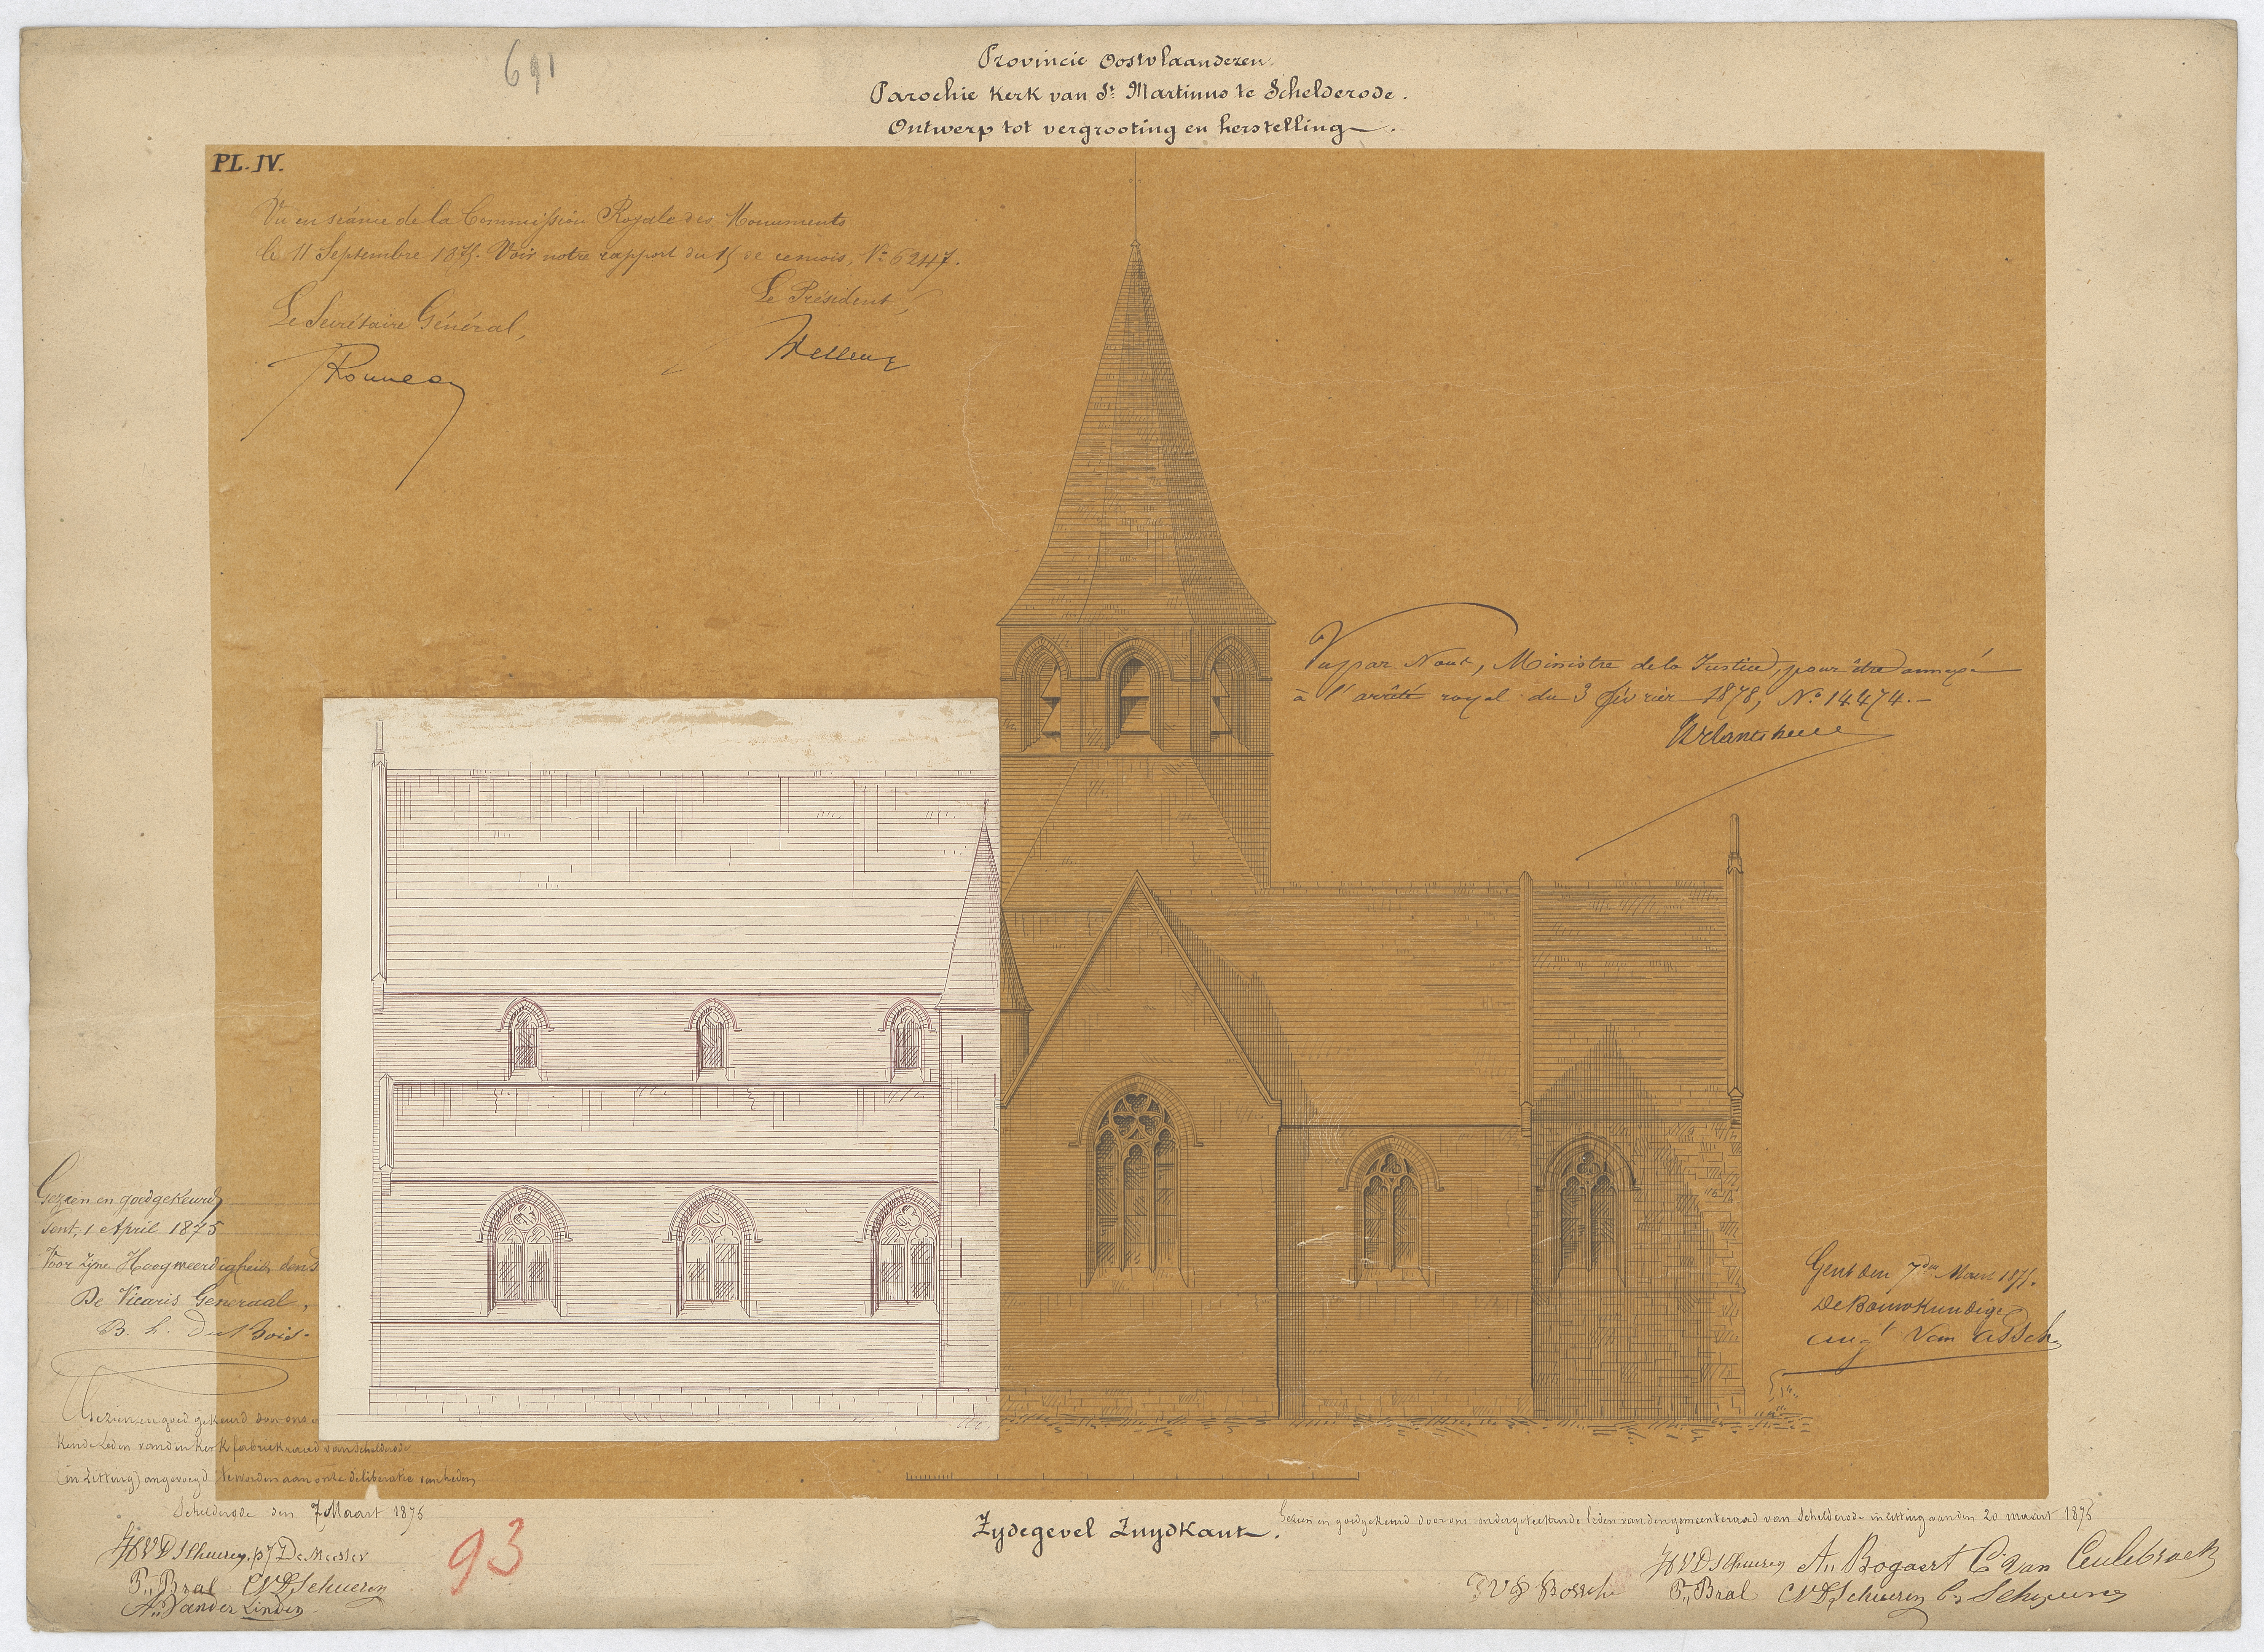 691
Provincie Oostvlaanderen.
Parochie Kerk van St. Martinus te Schelderode.
Ontwerp tot vergrooting en herstelling.
PL. IV.
Vu en séance de la Commission Royale des Monuments
le 11 Septembre 1875. Voir notre rapport du 15 de ce mois, No 6247.
Le Président,
Le Secrétaire Général,
Rousseau
Wellens
Vu par Nous, Ministre de la Justice, pour être annexé
à l'arrêté royal du 3 février 1878, No 14474.
Gezien en goedgekeurd
Gent, 1 April 1875
Voor zijne Hoogweerdigheid den
De Vicaris Generaal,
Du Bois.
Gent den 7den Maart 1875.
De Bouwkundige
Augt Van Assche
Gezien en goedgekeurd door ons
kende Leden van den Kerkfabriekraad van Schelderode
(in zitting) aangevoegd te worden aan onze deliberatie van heden
Schelderode den 7 Maart 1875
De Meester
P. Bral CVDSchueren
A. Vander Linden
93
Zydegevel Zuydkant.
Gezien en goedgekeurd door ons ondergeteekende leden van den gemeenteraad van Schelderode in zitting van den 20 maart 1875
An Bogaert C Van Ceulebroeck
VD Bossche P. Bral CVDSchueren